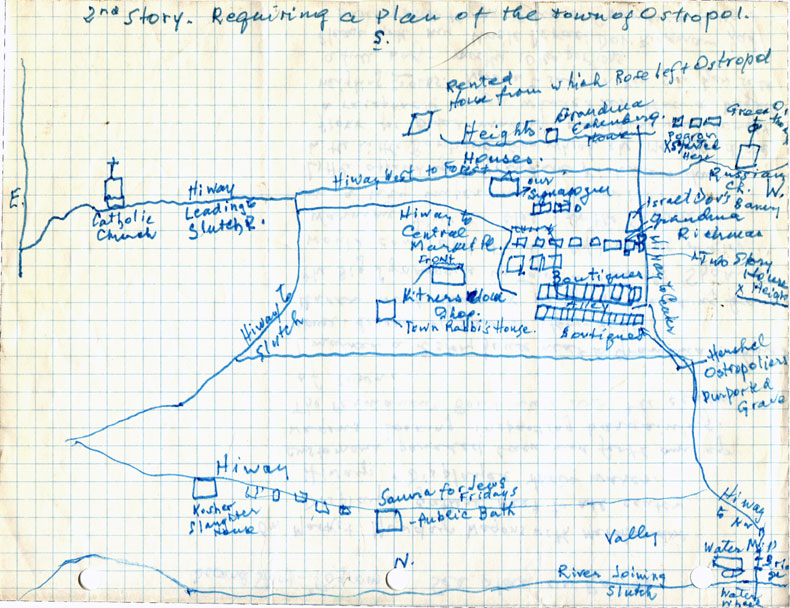 2nd Story. Requiring a Plan of the town of Ostropol.
S.
Rented
House from which Rose left Ostropol
Grandma
House
Heights
Houses.
Pogrom
X Started
Here
Hiway West to Forest
Russian
Ch.
W.
E.
Catholic
Church
Hiway
Leading to
Slutch R.
our
Synagogue
Hiway to
Central
Market Pl.
FRONT
Israel Dov's
Grandma
Richman
Two Story
House
X Heights
Boutiques
Alley
Boutiques
Hiway to Center
Shop.
Town Rabbi's House.
Hiway to
Slutch
Hershel
Ostropoliers
Purported
Grave
Hiway
Kosher
Slaughter
House
Sauna for Jews
Fridays
-Public Bath
Hiway
to
Valley
N.
Water Mill
Bridge
River Joining
Slutch
Water
Wheel